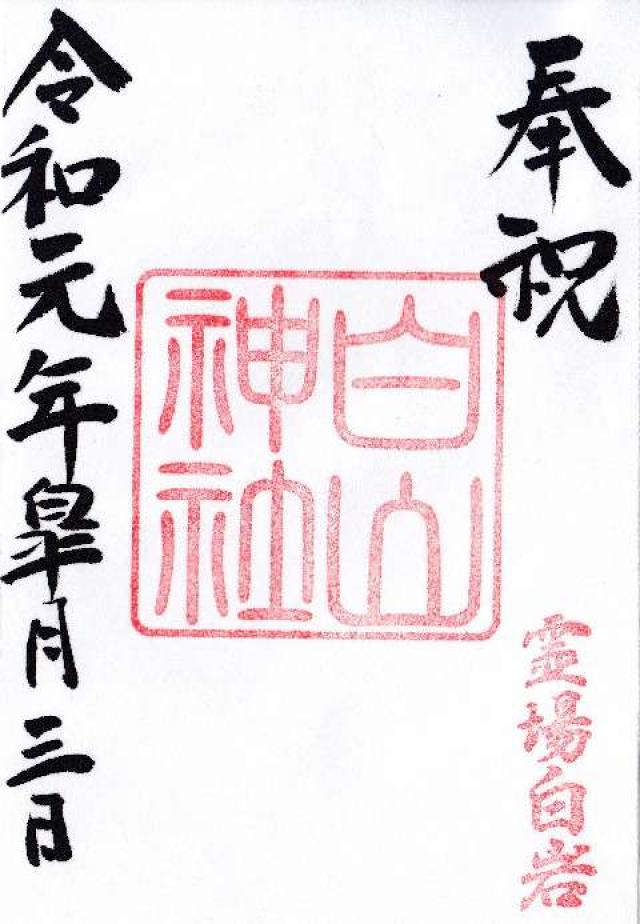 奉祝
白山
神社
霊場白岩
令和元年皐月三日